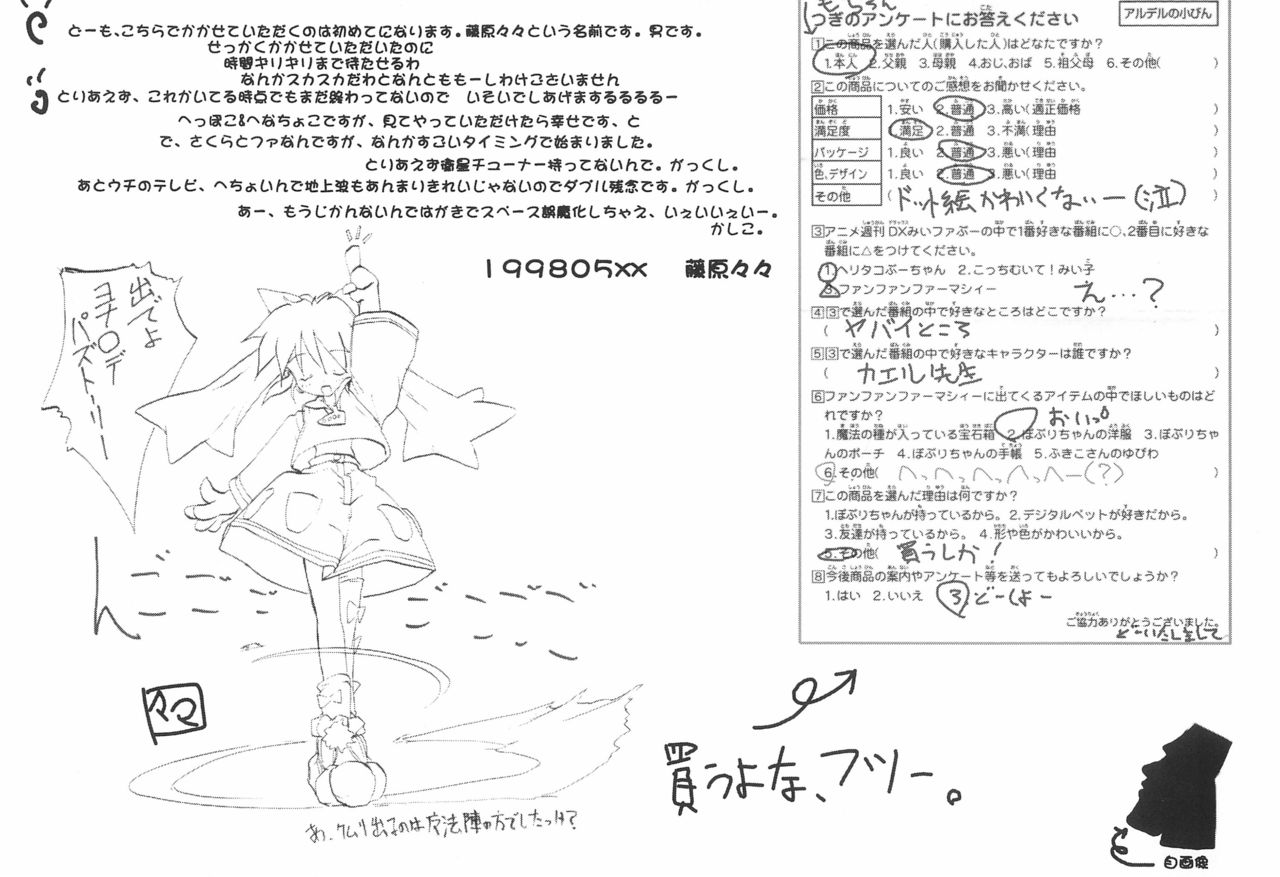 どーも、こちらでかかせていただくのは初めてになります。藤原々々という名前です。男です。
せっかくかかせていただいたのに
時間ギリギリまで待たせるわ
なんかスカスカだわとなんとももーしわけございません
とりあえず、これかいてる時点でもまだ終わってないので　いそいでしあげまするるるるー
へっぽこ&へなちょこですが、見てやっていただけたら幸せです、と
で、さくらとファなんですが、なんかすごいタイミングで始まりました。
とりあえず衛星チューナー持ってないんで。がっくし。
あとウチのテレビ、へちょいんで地上波もあんまりきれいじゃないのでダブル残念です。がっくし。
あー、もうじかんないんではがきでスペース誤魔化しちゃえ、いぇいいぇいー。
かしこ。
199805xx　藤原々々
出てよ
ヨナ〇デ
パストーリー
ん
ゴゴゴー
々マ
あ、ケムリ出るのは魔法陣の方でしたっけ?
もちろん
つぎのアンケートにお答えください
アルデルの小びん
1 この商品を選んだ人(購入した人)はどなたですか?
1.本人 2.父親 3.母親 4.おじ,おば 5.祖父母 6.その他( )
2 この商品についてのご感想をお聞かせください。
価格 1.安い 2.普通 3.高い(適正価格 )
満足度 1.満足 2.普通 3.不満(理由 )
パッケージ 1.良い 2.普通 3.悪い(理由 )
色,デザイン 1.良い 2.普通 3.悪い(理由 )
その他 (ドット絵かわいくないー(泣) )
3 アニメ週刊DXみいファぶーの中で1番好きな番組に○、2番目に好きな
番組に△をつけてください。
1.ヘリタコぶーちゃん 2.こっちむいて!みい子
3.ファンファンファーマシィー
え…?
4 3で選んだ番組の中で好きなところはどこですか?
( ヤバイところ )
5 3で選んだ番組の中で好きなキャラクターは誰ですか?
( カエル先生 )
6 ファンファンファーマシィーに出てくるアイテムの中でほしいものはど
れですか?
おいっ
1.魔法の種が入っている宝石箱 2.ぽぷりちゃんの洋服 3.ぽぷりちゃ
んのポーチ 4.ぽぷりちゃんの手帳 5.ふきこさんのゆびわ
6.その他( へっへっへっへっへー(?) )
7 この商品を選んだ理由は何ですか?
1.ぽぷりちゃんが持っているから。 2.デジタルペットが好きだから。
3.友達が持っているから。 4.形や色がかわいいから。
5.その他( 買うしか! )
8 今後商品の案内やアンケート等を送ってもよろしいでしょうか?
1.はい 2.いいえ 3 どーしよー
ご協力ありがとうございました。
どーいたしまして
買うよな、フツー。
自画像